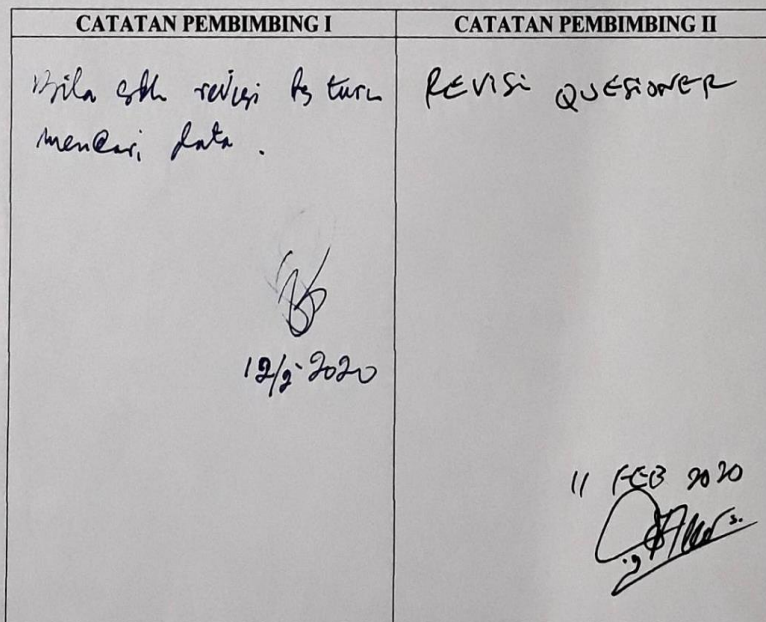 CATATAN PEMBIMBING I
CATATAN PEMBIMBING II
Bila sdh revisi bs turun
mencari data.
12/2-2020
REVISI QUESIONER
11 FEB 2020